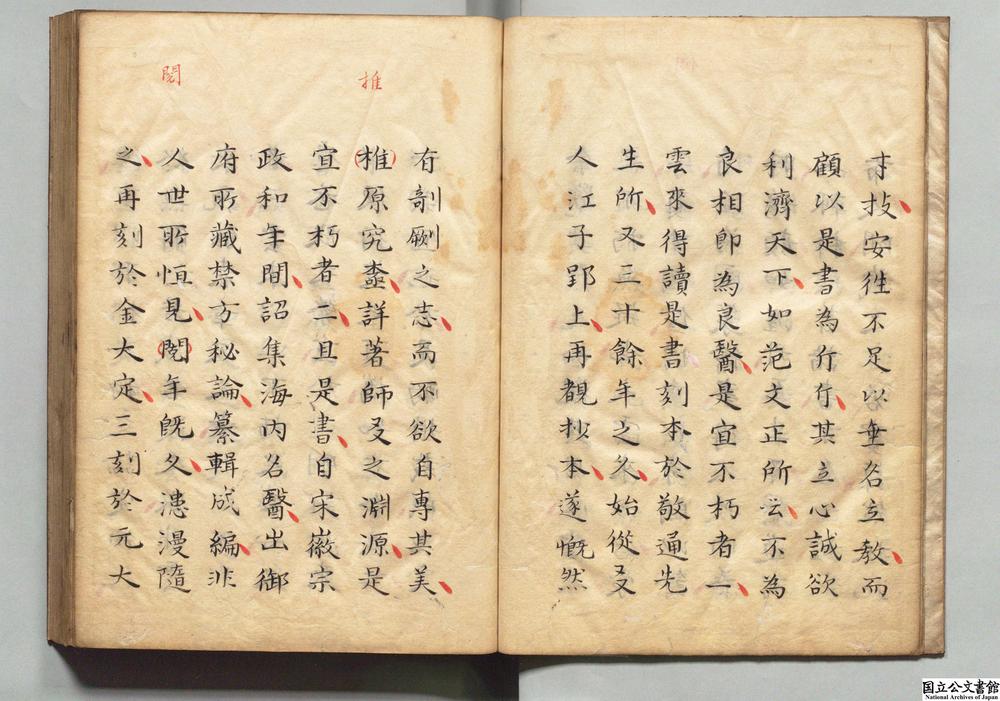 才技安徃不足以垂名立教而
顧以是書為斤斤其立心誠欲
利濟天下如范文正所云不為
良相即為良醫是宜不朽者一
雲來得讀是書刻本於敬通先
生所又三十餘年之久始從友
人江子郢上再覩抄本遂慨然
有剞劂之志而不欲自專其美
椎原究委詳著師友之淵源是
宜不朽者二且是書自宋徽宗
政和年間詔集海內名醫出御
府所藏禁方秘論纂輯成編非
人世所恒見閱年既久漶漫隨
之再刻於金大定三刻於元大
推
閱
国立公文書館
National Archives of Japan